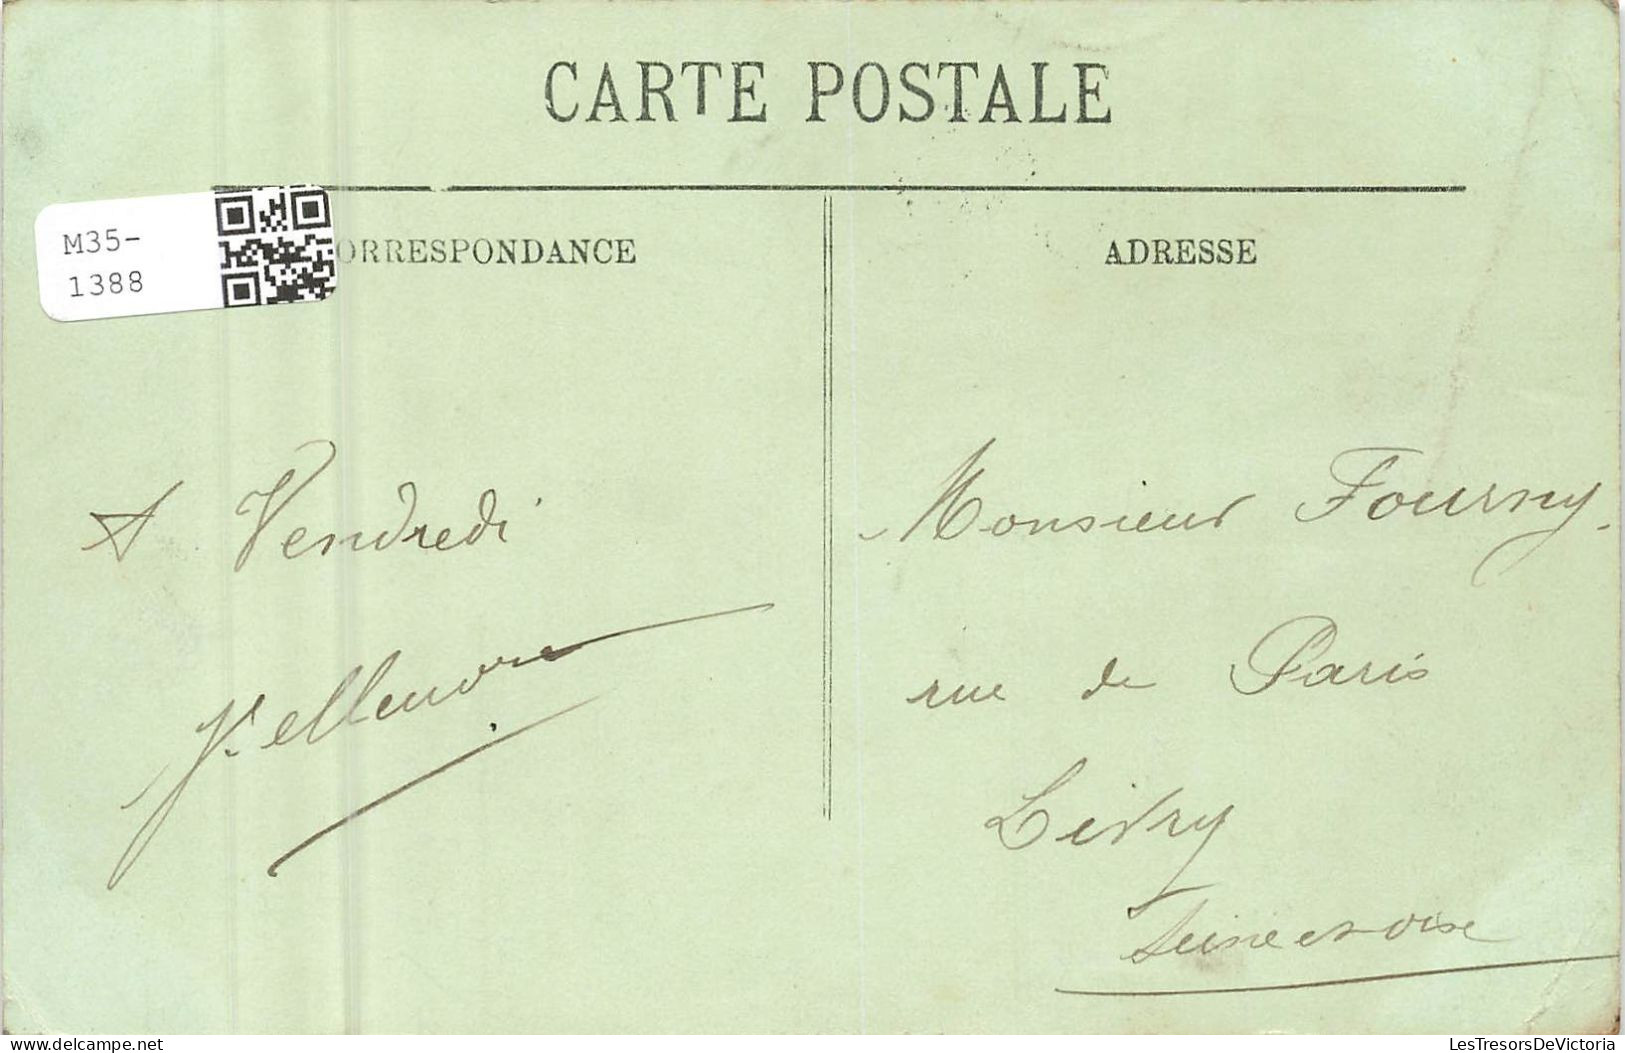 CARTE POSTALE
M35-
1388
ORRESPONDANCE
ADRESSE
A Vendredi
Monsieur Fourny.
rue de Paris
Livry
Seine et oise
delcampe.net
LesTresorsDeVictoria